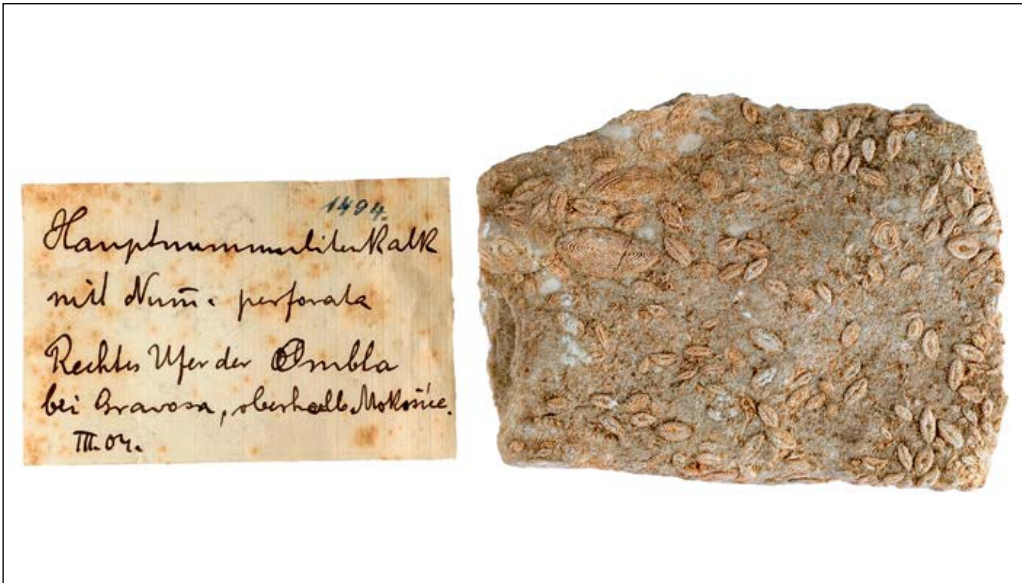 1494.
Hauptnummulitenkalk
mit Num̄. perforata
Rechtes Ufer der Ombla
bei Gravosa, oberhalb Mokošice.
III. 04.